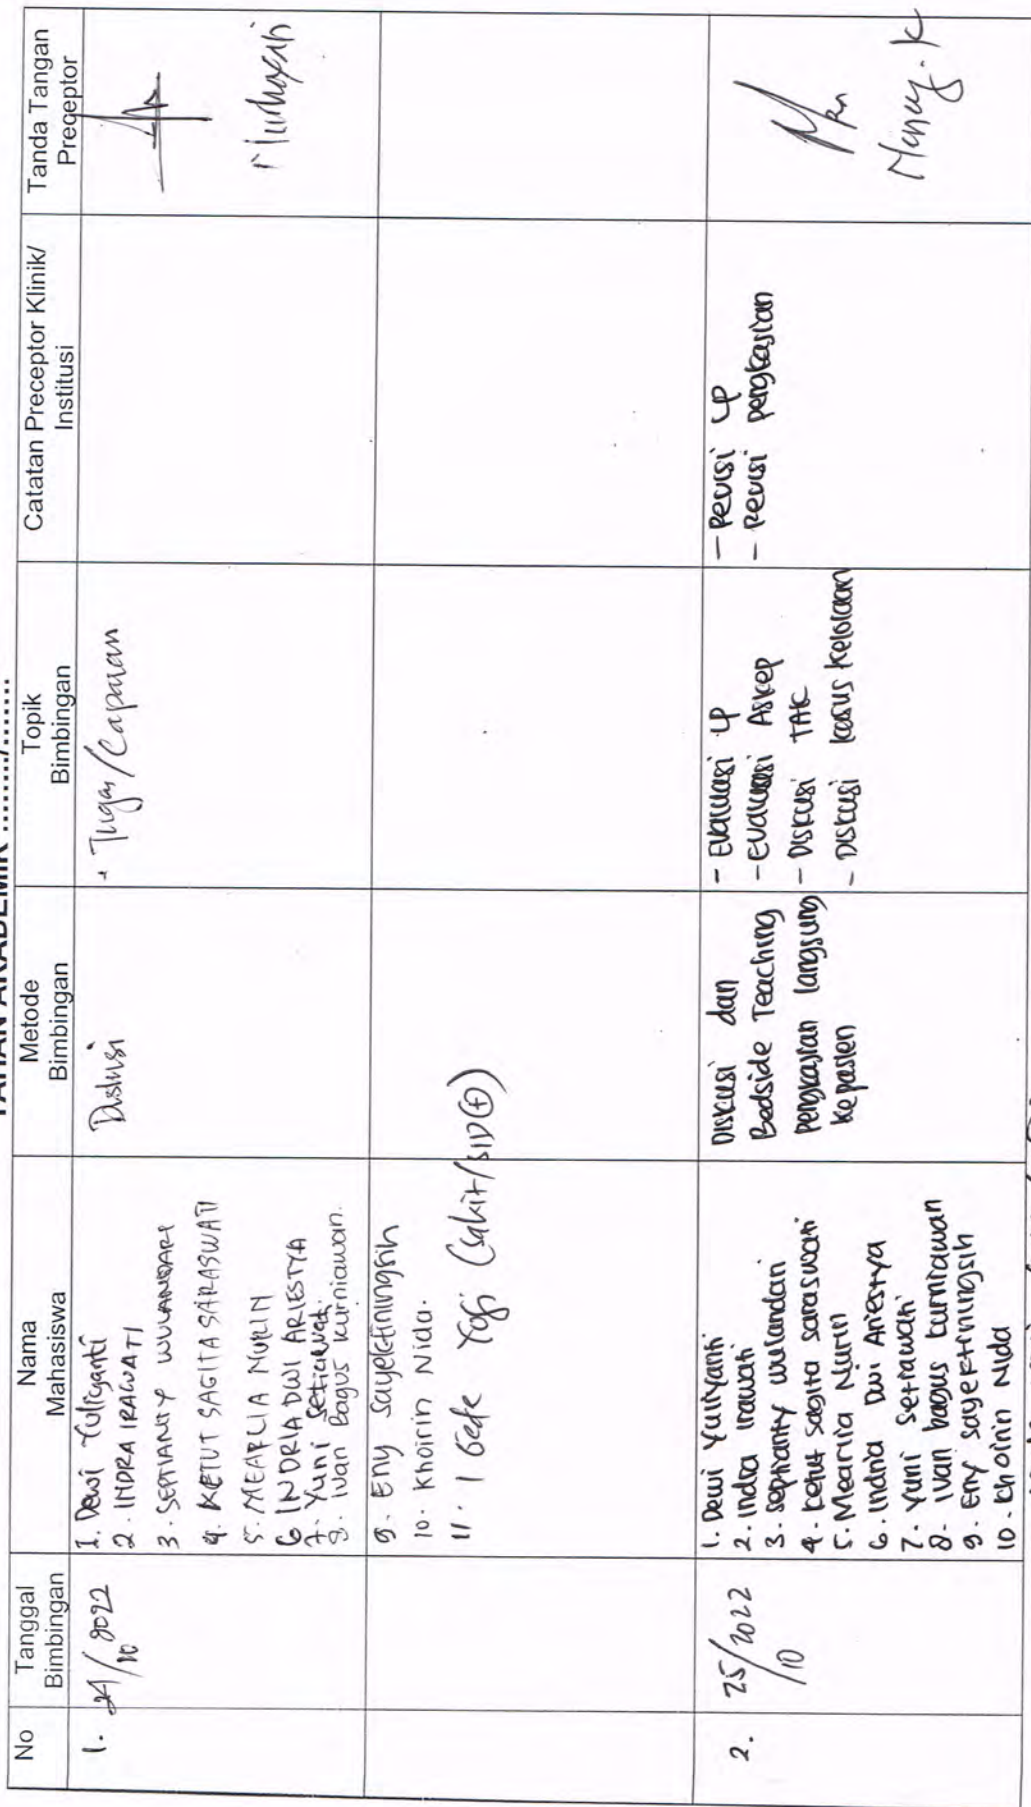 TAHUN AKADEMIK ......../.......
No
Tanggal
Bimbingan
Nama
Mahasiswa
Metode
Bimbingan
Topik
Bimbingan
Catatan Preceptor Klinik/
Institusi
Tanda Tangan
Preceptor
1.
24/2022
10
1. Dewi Yuliyanti
2. INDRA IRAWATI
3. SEPTIANTY WULANDARI
4. KETUT SAGITA SARASWATI
5. MEARLIA NURLIN
6 INDRIA DWI ARIESTYA
7. Yuni Setiawati
8. Ivan Bagus Kurniawan.
Diskusi
- Tugas/Capaian
9. Eny Sayektiningsih
10. Khoirin Nida.
11. I Gede Yogi (Sakit/SID(+))
2.
25/2022
/10
1. Dewi Yuliyanti
2. Indra Irawati
3. Septianty wulandari
4. Ketut Sagita saraswati
5. Mearlia Nurin
6. Indria Dwi Ariestya
7. Yuni Setiawati
8. Ivan bagus kurniawan
9. Eny sayektiningsih
10. Khoirin Nida
Diskusi dan
Bedside Teaching
pengkajian langsung
kepasien
- Evaluasi LP
- Evaluasi Askep
- Diskusi TAK
- Diskusi kasus kelolaan
- Revisi LP
- Revisi pengkajian